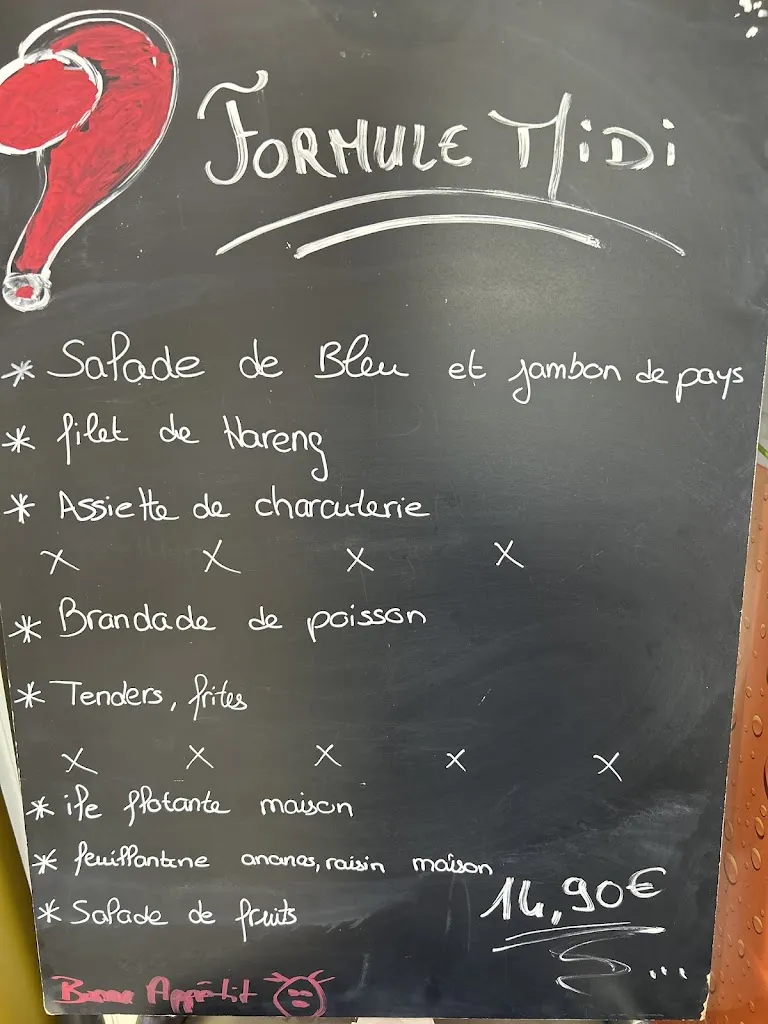 FORMULE MiDi
* Salade de Bleu et jambon de pays
* filet de Hareng
* Assiette de charcuterie
x x x x
* Brandade de poisson
* Tenders, frites
x x x x x
* ile flotante maison
* feuillantine ananas, raisin maison
* Salade de fruits
14,90€
...
Bonne Appétit